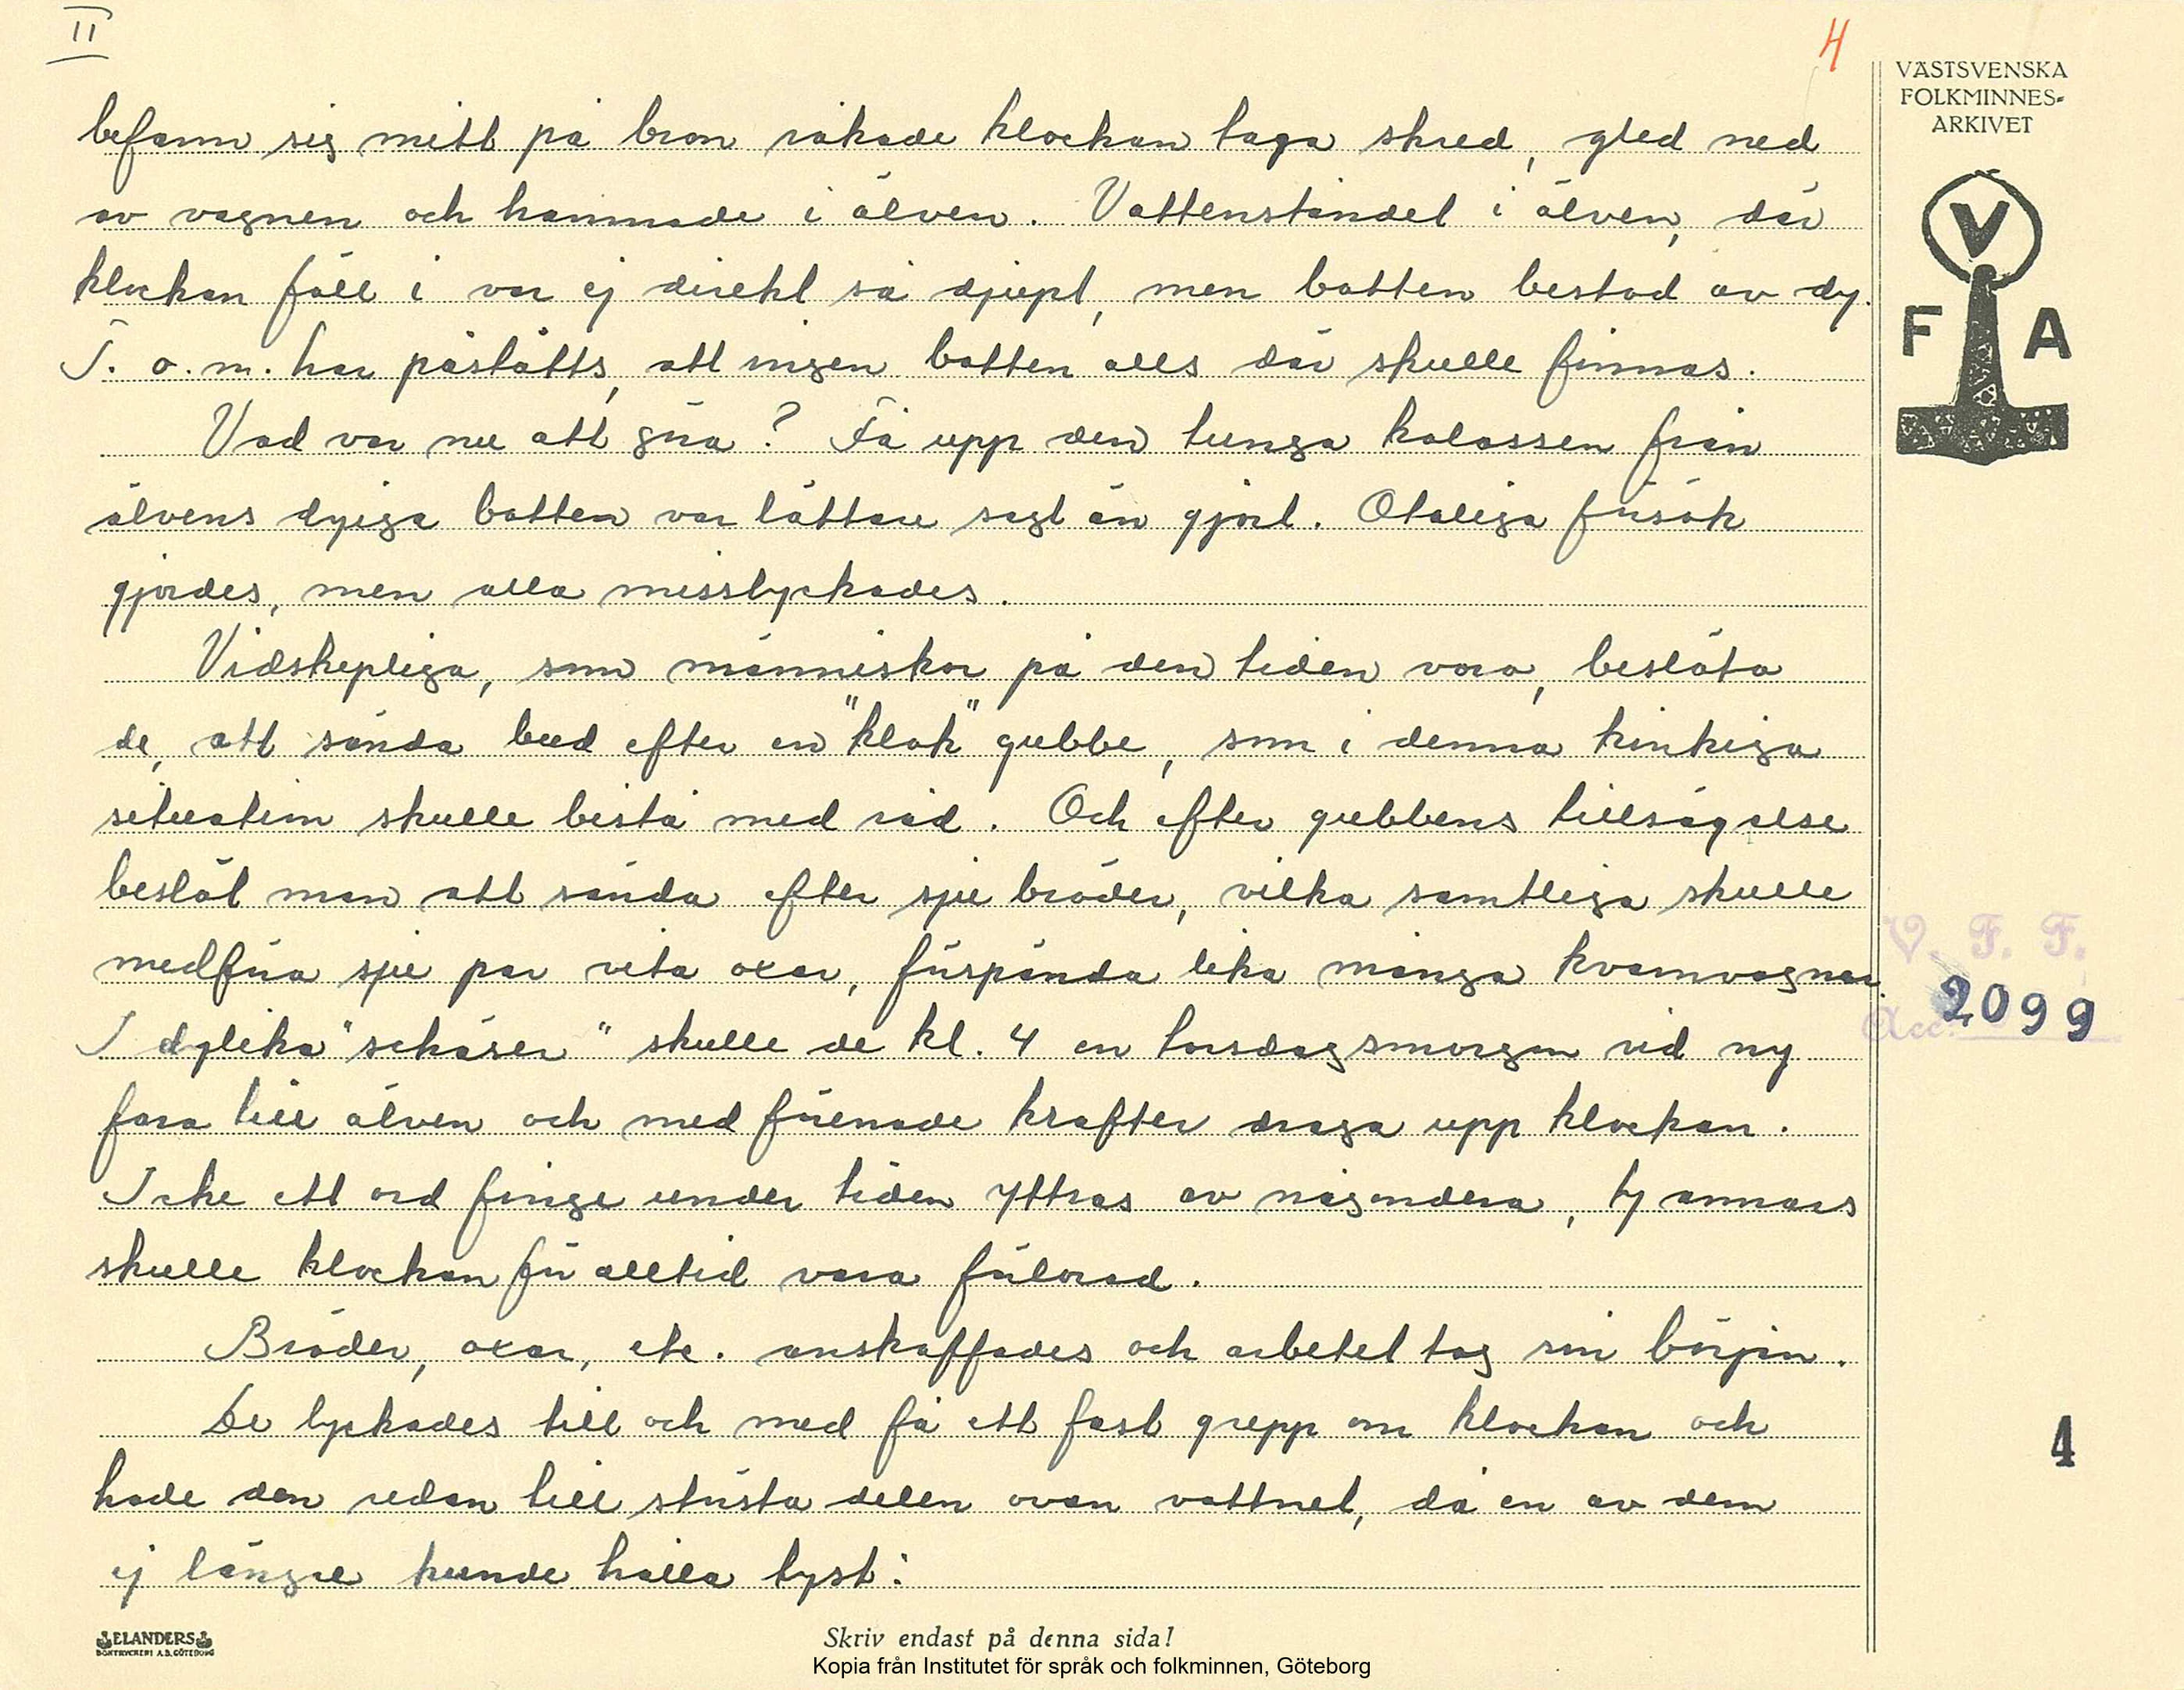 II
4
VÄSTSVENSKA
FOLKMINNES-
ARKIVET
V
F A
befann sig mitt på bron råkade klockan taga skred, gled ned
av vagnen och hamnade i älven. Vattenståndet i älven, där
klockan föll i var ej direkt så djupt, men botten bestod av dy.
T. o. m. har påståtts, att ingen botten alls där skulle finnas.
Vad var nu att göra? Få upp den tunga kolossen från
älvens dyiga botten var lättare sagt än gjort. Otaliga försök
gjordes, men alla misslyckades.
Vidskepliga, som människor på den tiden voro, beslöto
de, att sända bud efter en "klok" gubbe, som i denna kinkiga
situation skulle bistå med råd. Och efter gubbens tillsägelse
beslöt man att sända efter sju bröder, vilka samtliga skulle
medföra sju par vita oxar, förspända lika många kvarnvagnar.
I dylika "schäser" skulle de kl. 4 en torsdagsmorgon vid ny
fara till älven och med förenade krafter draga upp klockan.
Icke ett ord finge under tiden yttras av någondera, ty annars
skulle klockan för alltid vara förlorad.
Bröder, oxar, etc. anskaffades och arbetet tog sin början.
De lyckades till och med få ett fast grepp om klockan och
hade den redan till största delen ovan vattnet, då en av dem
ej längre kunde hålla tyst:
V. F. F.
Acc. 2099
4
ELANDERS
BOKTRYCKERI A.B. GÖTEBORG
Skriv endast på denna sida!
Kopia från Institutet för språk och folkminnen, Göteborg